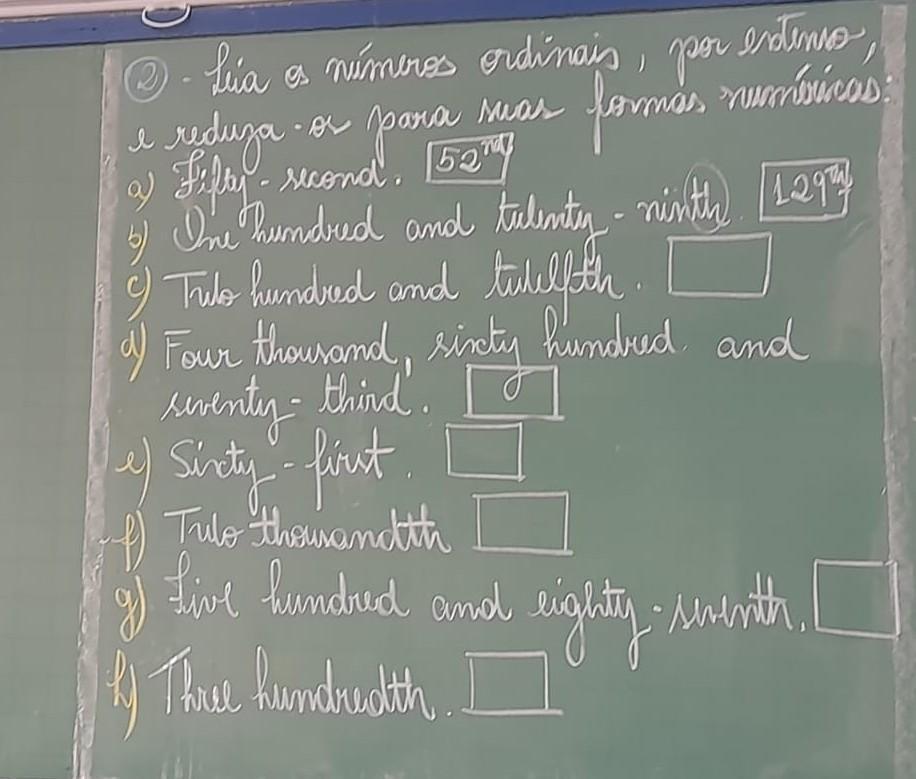 2 - Leia os números ordinais, por extenso,
e reduza-os para suas formas numéricas:
a) Fifty-second. 52nd
b) One hundred and twenty-ninth. 129th
c) Two hundred and twelfth.
d) Four thousand, sixty hundred and
seventy-third.
e) Sixty-first.
f) Two thousandth
g) Five hundred and eighty-seventh.
h) Three hundredth.